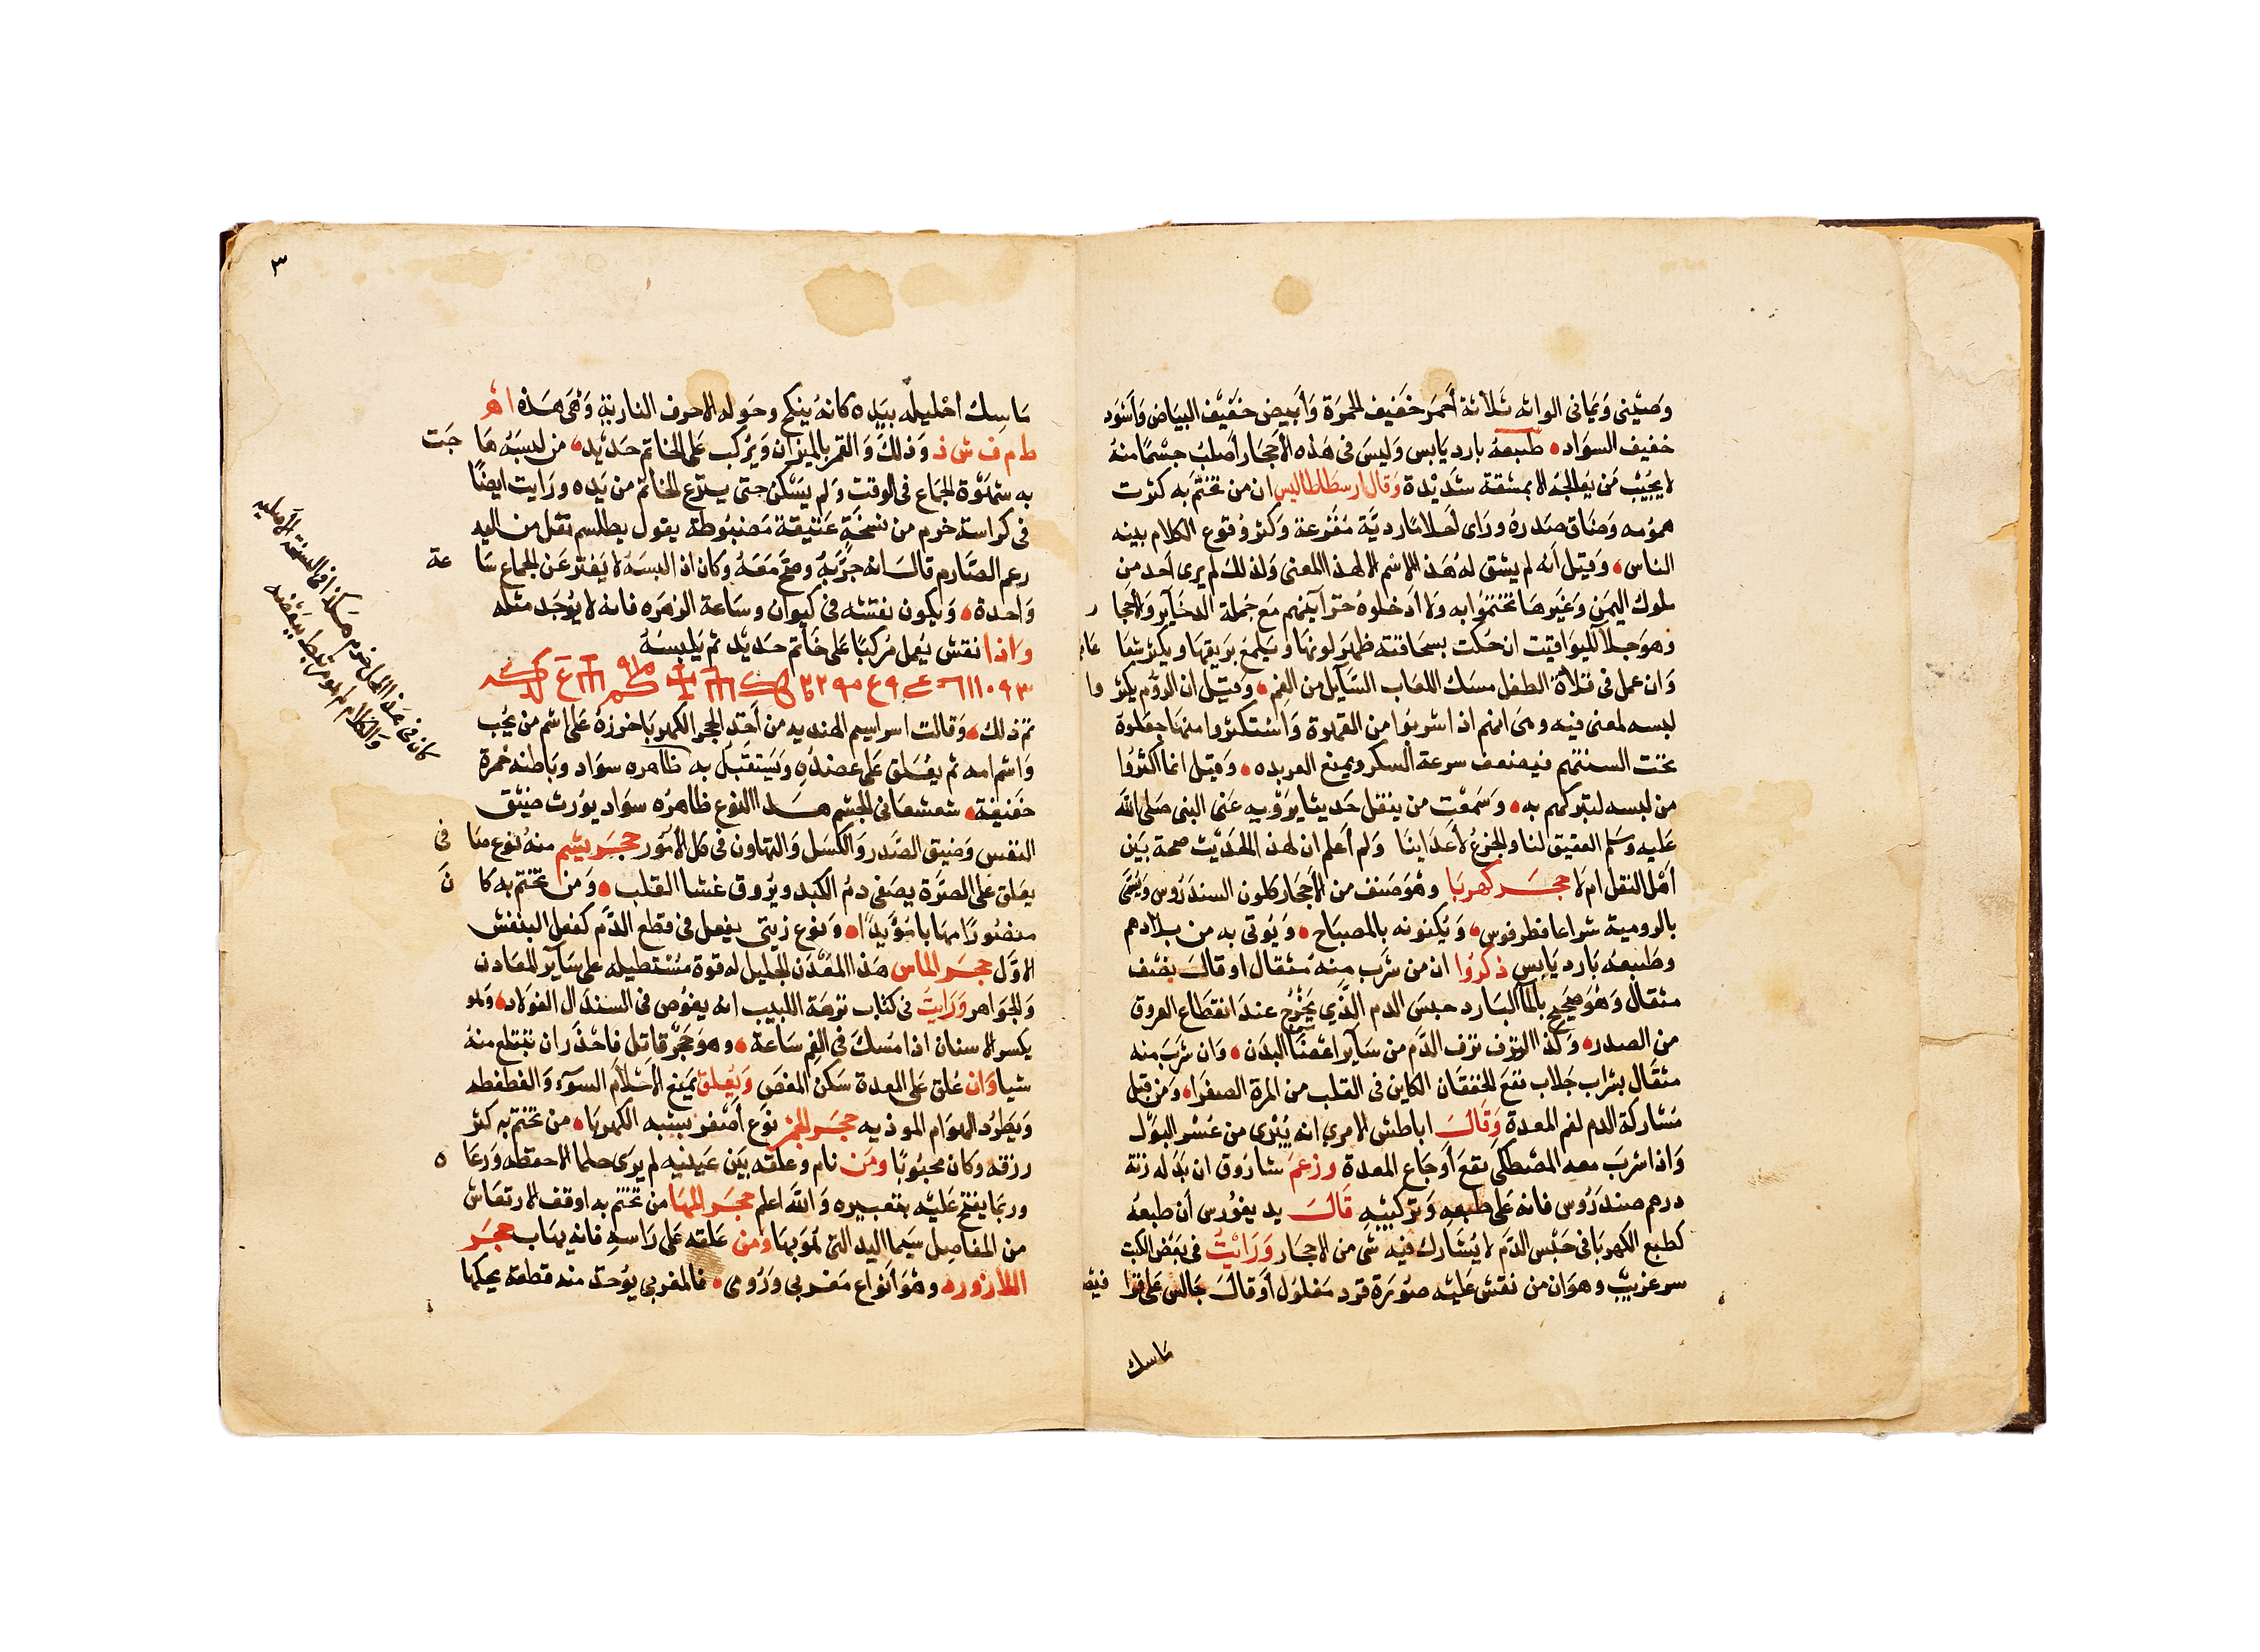 وصيني ويماني الوانه ثلاثة أحمر خفيف الحمرة وأبيض خفيف البياض وأسود
خفيف السواد طبعه بارد يابس وليس في هذه الأحجار أصلب جسما منه
لا يجيب من يعالجه الا بمشقة شديدة وقال ارسطاطاليس ان من تختم به كثرت
همومه وضاق صدره وراى أحلاما ردية مفزعة وكثر وقوع الكلام بينه
الناس وقيل أنه لم يشق له هذا الاسم الا لهذا المعنى ولذلك لم يرى أحد من
ملوك اليمن وغيرها تختموا به ولا أدخلوه خزآينهم مع جملة الدخاير والاحجا ر
وهو جلا لليواقيت ان حكت بسحاقته ظهر لونها ويلمع بريقها ويكثر شعا عها
وان عمل في قلادة الطفل مسك اللعاب السآيل من الفم وقيل ان الروم يكثر وا
لبسه لمعنى فيه وهي انهم اذا شربوا من القهوة واستكثروا منها جعلوه
تحت السنتهم فيضعف سرعة السكر ويمنع العربده وقيل انما اكثروا
من لبسه لتبركهم به وسمعت من ينقل حديثا يرويه عنى النبي صلى الله
عليه وسلم العقيق لنا والجزع لأعداينا ولم أعلم ان لهذا الحديث صحة بين
أهل النقل ام لا حجر كهربا وهو صنف من الأحجار كلون السندروس ويسمى
بالرومية شراعا فطرفوس ويكنونه بالمصباح ويوتى به من بلادهم
وطبعه بارد يابس ذكروا ان من شرب منه مثقال او قال نصف
مثقال وهو صحيح بالمآ البارد حبس الدم الذي يخرج عند انقطاع العروق
من الصدر وكذا النزف نزف الدم من ساير اعضا البدن وان شرب منه
مثقال بشراب جلاب نفع الخفقان الكاين في القلب من المرة الصفرا ومن قبل
مشاركة الدم لفم المعدة وقال اباطش الامري انه يبرى من عسر البول
واذا شرب معه المصطكى نفع أوجاع المعدة وزعم شاروق ان بدله زنة
درهم صندروس فانه على طبعه وتركيبه قال يد يغورس أن طبعه
كطبع الكهربا في حبس الدم لا يشارك فيه شي من الاحجار ورايت في بعض الكتب
سر غريب وهو ان من نقش عليه صورة قرد مغلول أو قال جالس على قرا فيصه
ماسك
٣
ماسك احليله بيده كانه ينكح وحوله الاحرف النارية وهي هذه اه
ط م ف ش ذ وذلك والقمر بالميزان ويركب على الخاتم حديد من لبسه ها جت
به شهوة الجماع في الوقت ولم يسكن حتى ينزع الخاتم من يده ورايت ايضا
في كراسة خرم من نسخة عتيقة مضبوطة يقول بطلسم نقل من اليه
رعم الصارم قال انه جربه وصح معه وكان اذا لبسه لا يفتر عن الجماع سا عة
واحدة ويكون نقشه في كيوان وساعة الزهره فانه لا يوجد مثله
واذا نقش يعمل مركبا على خاتم حديد ثم يلبسه
تم ذلك وقالت اسراسيم الهنديه من أخذ الحجر الكهربا خرزه على اسم من يحب
واسم امه ثم يعلق على عضده ويستقبل به ظاهره سواد وباطنه حمرة
خفيفة شعشعاني الجسم هذا النوع ظاهره سواد يورث ضيق
النفس وضيق الصدر والكسل والتهاون في كل الأمور حجر يشم منه نوع صا في
يعلق على الصرة يصفى دم الكبد ويروق غشا القلب ومن تختم به كا ن
منصورا مهابا مؤيدا ونوع زيتي يفعل في قطع الدم كفعل البنفش
الاول حجر الماس هذا المعدن الجليل له قوة مستطيله على ساير المعادن
والجواهر ورايت في كتاب نزهة اللبيب انه يغوص في السندال الفولاد وهو
يكسر الاسنان اذا مسك في الفم ساعة وهو حجر قاتل فاحذر ان تبتلع منه
شيا وان علق على المعدة سكن المغص وتعلق يمنع الأحلام السوء والغطغطه
ويطرد الهوام الموذيه حجر الخز نوع أصفر يشبه الكهربا من تختم به كثر
رزقه وكان محبوبا ومن نام وعلقه بين عينيه لم يرى حلما الا حفظه ورعا ه
وربما يفتح عليه بتعبيره والله اعلم حجر المها من تختم به اوقف الارتعاش
من المفاصل سيما اليد التي هو بها ومن علقه على راسه فانه يهاب حجر
اللازورد وهو أنواع مغربي ورومي فالمغربي يوخذ منه قطعة يحكها
كان في هذا المكان خرم هكذا في النسخة الأصليه